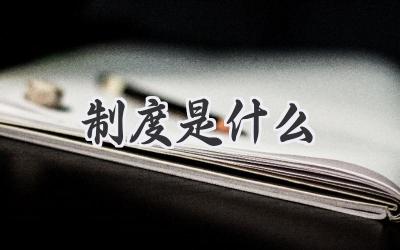 制度是什么